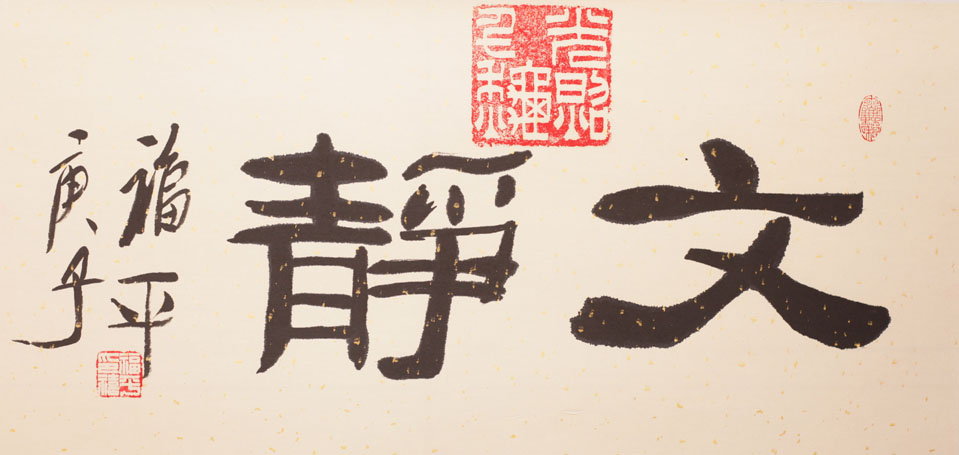 文靜
福平
庚子